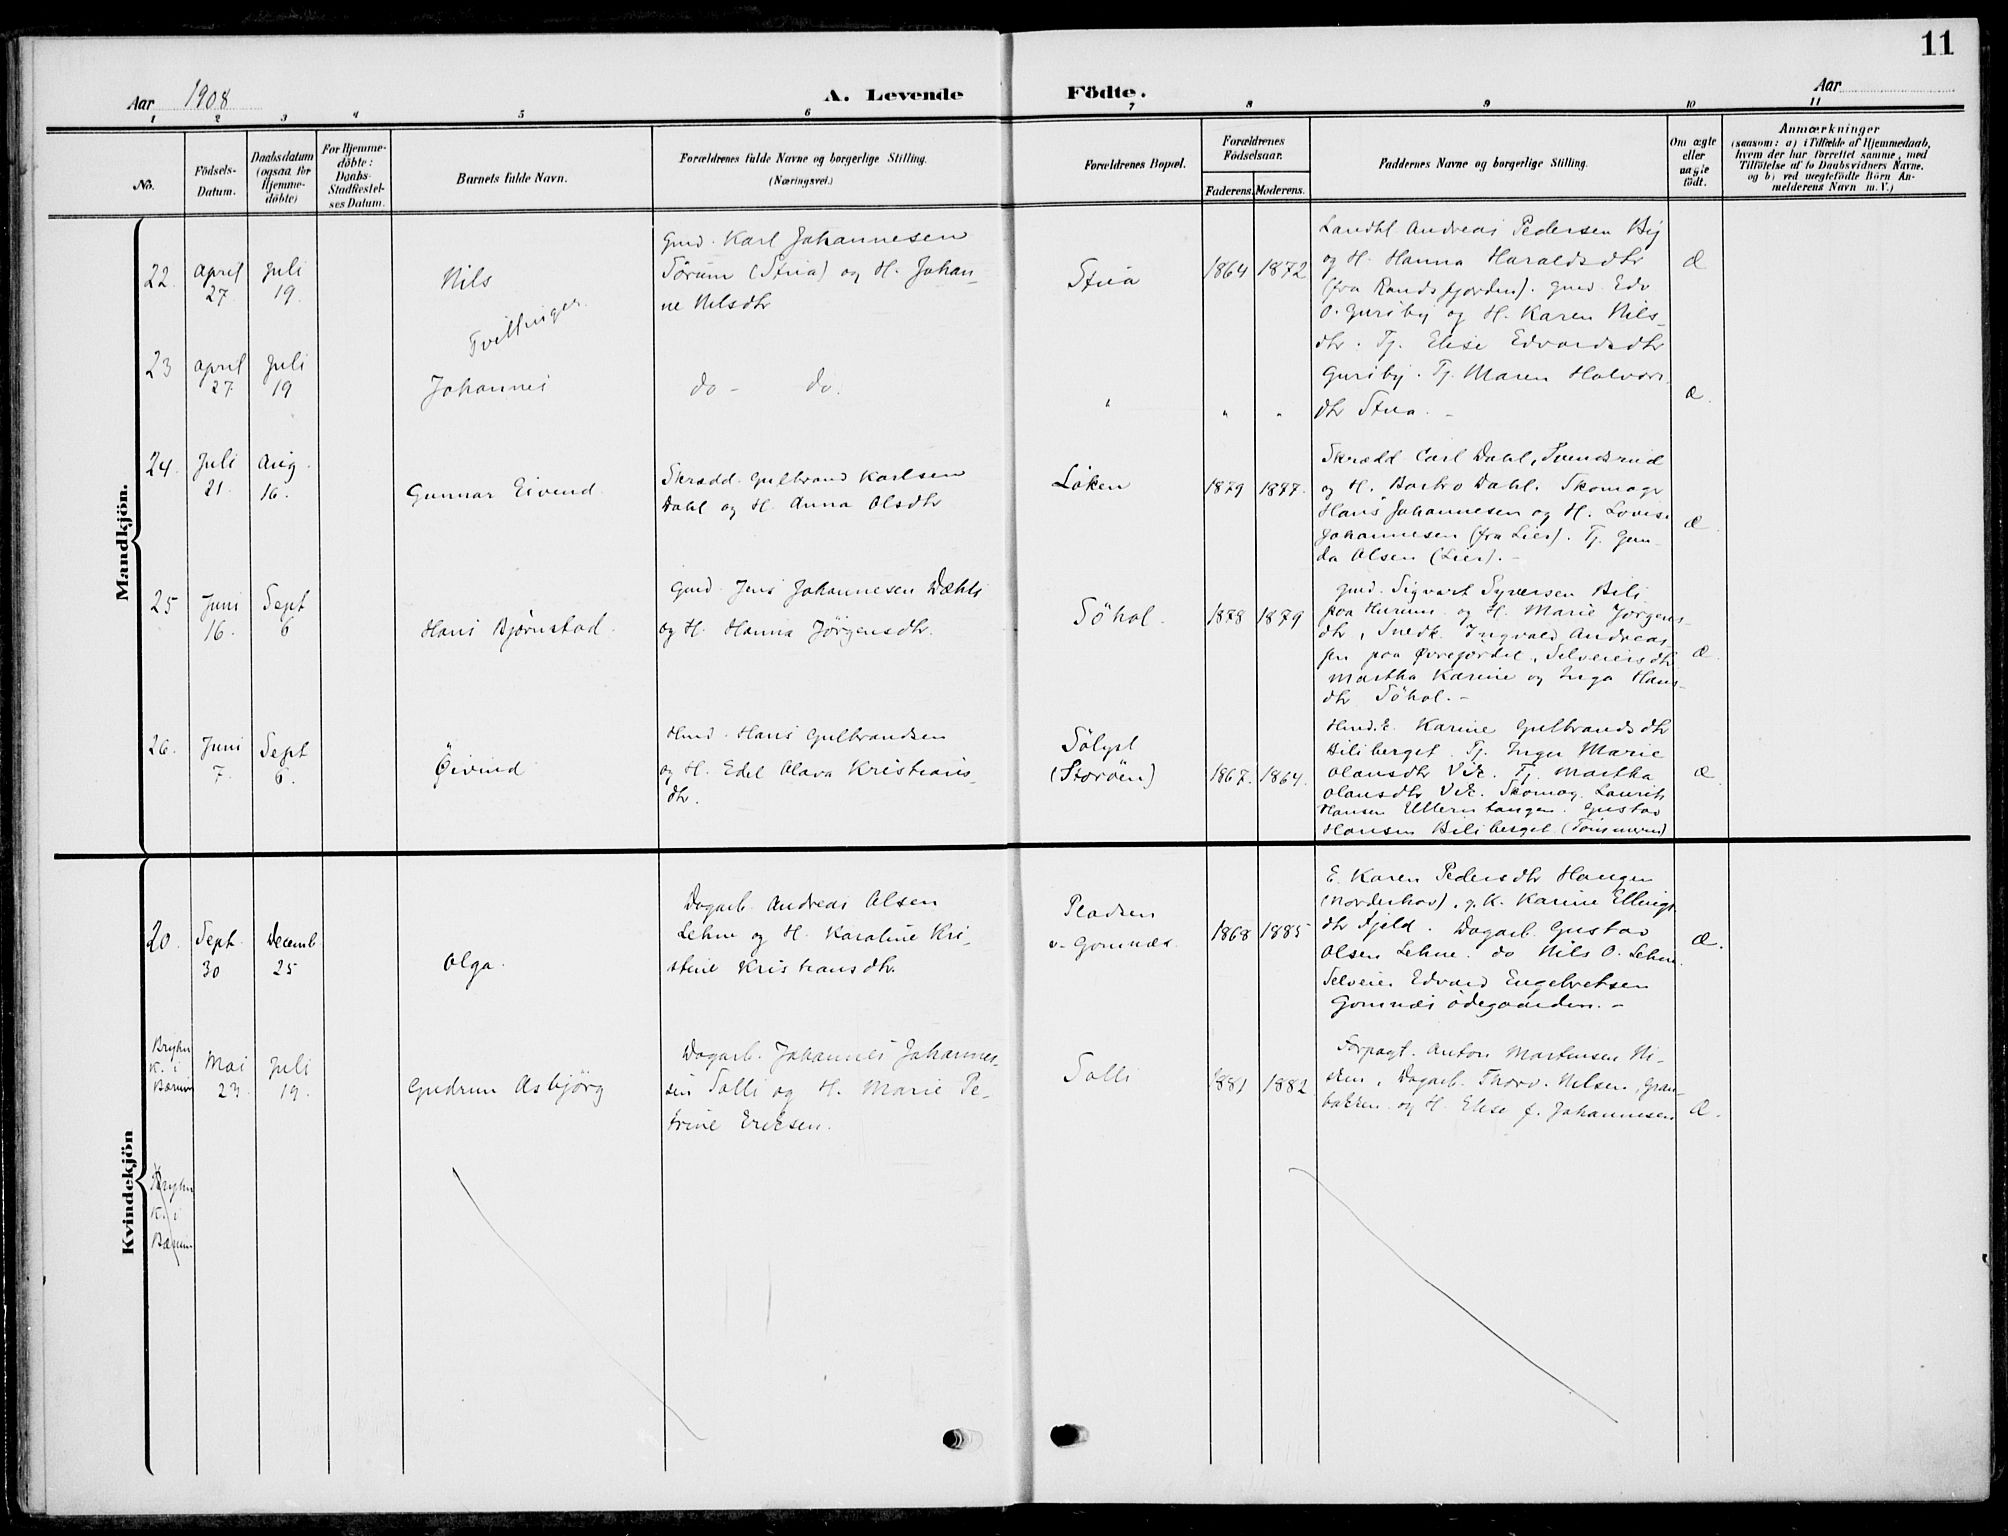 11
Aar 1908
A. Levende
Födte.
Aar
1 2 3 4 5 6 7 8 9 10 11
No.
Födsels-
Datum.
Daabsdatum
(ogsaa for
Hjemme-
döbte)
For Hjemme-
döbte:
Daabs-
Stadfæstel-
ses Datum.
Barnets fulde Navn.
Forældrenes fulde Navne og borgerlige Stilling.
(Næringsvei.)
Forældrenes Bopæl.
Forældrenes
Födselsaar.
Faderens. Moderens.
Faddernes Navne og borgerlige Stilling.
Om ægte
eller
uægte
födt.
Anmærkninger
(saasom: a) i Tilfælde af Hjemmedaab,
hvem der har forrettet samme, med
Tilföielse af to Daabsvidners Navne.
og b) ved uægtefödte Börn An-
melderens Navn m.V.)
Mandkjön.
22. april 27 Juli 19.
Nils
Gmd. Karl Johannesen
Sørum (Stua) og H. Johan-
ne Nilsdtr
Stua
1864 1872
Landhl Andreas Pedersen Big
og H. Hanna Haraldsdtr
(fra Randsfjorden). Gmd. Edv
O. Gursby og H. Karen Nils-
dtr. Tj. Elise Edvardsdtr
Gursby. Tj. Maren Halvors
dtr Stua. -
Æ
Tvillinger
23 april 27. Juli 19
Johannes
do - do.
" " "
Æ.
24. Juli 21. Aug. 16.
Gunnar Eivind.
Skrædd. Gulbrand Karlsen
Dahl og H. Anna Olsdtr
Løken
1879 1877.
Skrædd Carl Dahl, Svendsrud
og H. Barbro Dahl. Skomagr
Hans Johannesen og H. Lovise
Johannesen (fra Lier). Tj. Gun-
da Olsen (Lier). -
Æ.
25 Juni 16. Sept 6
Hans Bjørnstad.
Gmd. Jens Johannesen Dæhli
og H. Hanna Jørgensdtr.
Söhol.
1878 1879
Gmd. Sigvart Syversen Bili
paa Hurum og H. Marie Jørgens-
dtr, Snedk. Ingvald Andreas-
sen paa Øvrejordet, Selveiersdtr
Martha Karine og Inga Hans-
dtr Söhol. -
Æ.
26. Juni 7. Sept 6.
Öivind
Hmd. Hans Gulbrandsen
og H. Edel Olava Kristians-
dtr.
Sölyst
(Storöen)
1867. 1864.
Hmd.E. Karine Gulbrandsdtr
Biliberget. Tj. Inga Marie
Olausdtr Vik. Tj. Martha
Olausdtr Vik. Skomag. Laurits
Hansen Elternstangen. Gustav
Hansen Biliberget. (Tömmerm)
Æ.
Kvindekjön
20. Sept. 30 Decemb 25
Olga.
Dagarb. Andreas Olsen
Lehne og H. Karoline Kri-
stine Kristiansdtr.
Pladsen
v. Gomnæs.
1868 1885
E. Karen Pedersdtr Haugen
(Norderhov), g. K. Karine Ellings
dtr Fjeld. Dagarb. Gustav
Olsen Lehne. do Nils O. Lehne.
Selveier Edvard Engebretsen
Gomnæs ödegaarden. -
Æ.
Bryhn
K. i
Bærum
Mai 23. Juli 19.
Gudrun Asbjörg
Dagarb. Johannes Johannes-
sen Solli og H. Marie Pe-
trine Eriksen.
Solli
1881 1882
Forpagt. Anton Martinsen Ni-
sken, Dagarb. Thorv. Nilsen, Gran-
bakken og H. Elise f. Johannesen
Æ.
Bryhn
K. i
Bærum